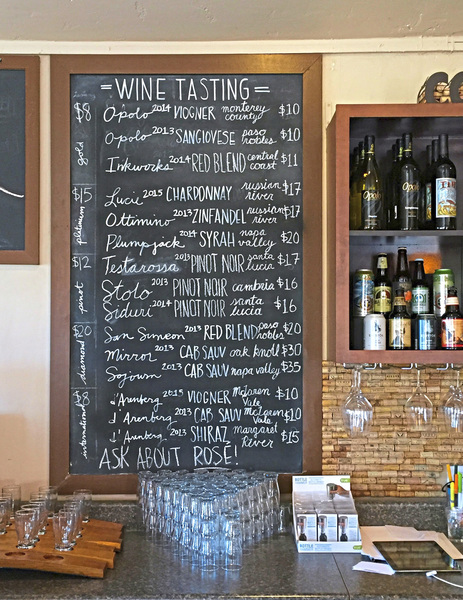 = WINE TASTING =
$8 gold
Opolo 2014 VIOGNER monterey county $10
Opolo 2013 SANGIOVESE paso robles $10
Inkworks 2014 RED BLEND central coast $11
$15 platinum
Lucie 2015 CHARDONNAY russian river $17
Ottimino 2013 ZINFANDEL russian river $17
Plumpjack 2014 SYRAH napa valley $20
$12 pinot
Testarossa 2013 PINOT NOIR santa lucia $17
Stolo 2013 PINOT NOIR cambria $16
Siduri 2014 PINOT NOIR santa lucia $16
$20 diamond
San Simeon 2013 RED BLEND paso robles $20
Mirror 2013 CAB SAUV oak knoll $30
Sojourn 2013 CAB SAUV napa valley $35
$8 international
d'Arenberg 2015 VIOGNER McLaren Vale $10
d'Arenberg 2013 CAB SAUV McLaren Vale $10
d'Arenberg 2013 SHIRAZ Margaret River $15
ASK ABOUT ROSÉ!
Opolo